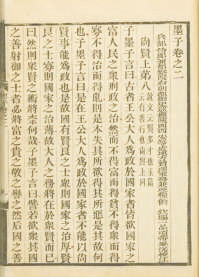 墨子卷之二
尚賢上第八
子墨子言曰古者王公大人爲政於國家者皆欲國家之
富人民之眾刑政之治然而不得富而得貧不得眾而得
寡不得治而得亂則是本失其所欲得其所惡是其故何
也子墨子言曰是在王公大人爲政於國家者不能以尚
賢事能爲政也是故國有賢良之士眾則國家之治厚賢
良之士寡則國家之治薄故大人之務將在於眾賢而已
曰然則眾賢之術將柰何哉子墨子言曰譬若欲眾其國
之善射御之士者必將富之貴之敬之譽之然后國之善